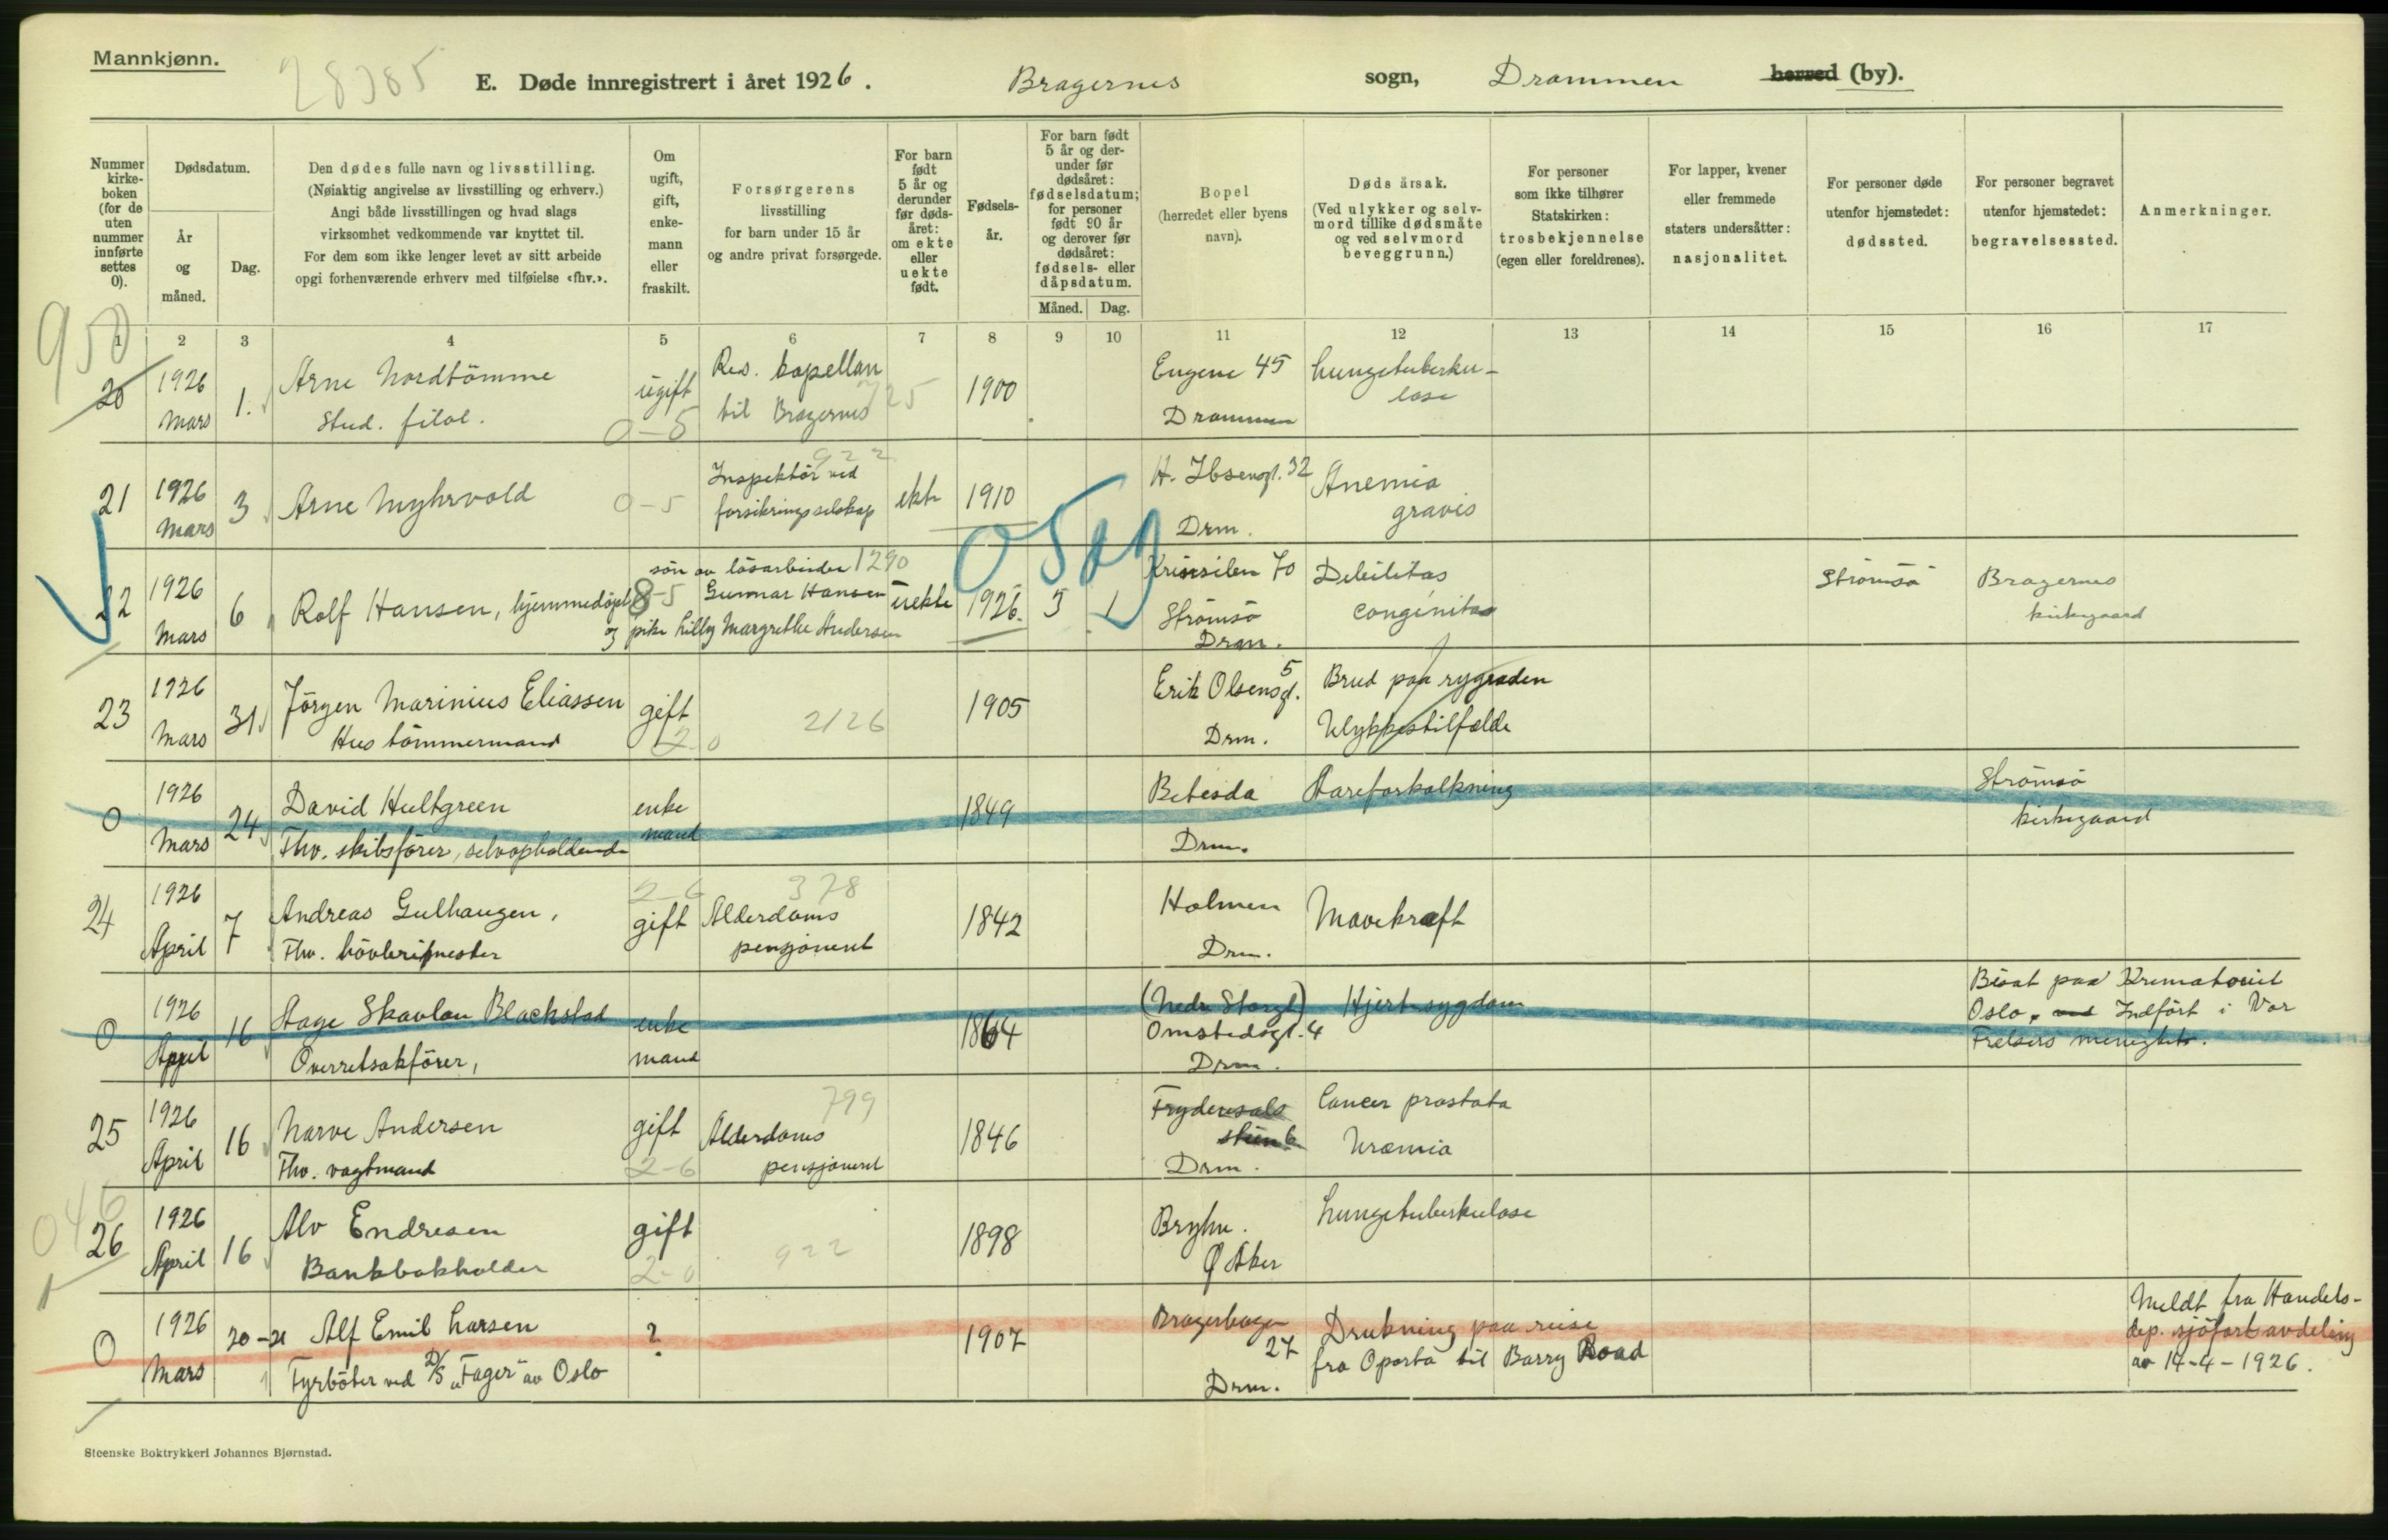 Mannkjønn.
28385
E. Døde innregistrert i året 1926. Bragernes sogn, Drammen herred (by).
Nummer kirke-boken (for de uten nummer innførte settes 0).
Dødsdatum.
År og måned.
Dag.
Den dødes fulle navn og livsstilling.
(Nøiaktig angivelse av livsstilling og erhverv.)
Angi både livsstillingen og hvad slags
virksomhet vedkommende var knyttet til.
For dem som ikke lenger levet av sitt arbeide
opgi forhenværende erhverv med tilføielse «fhv.».
Om ugift, gift, enke-mann eller fraskilt.
Forsørgerens
livsstilling
for barn under 15 år
og andre privat forsørgede.
For barn født 5 år og derunder før døds-året: om ekte eller uekte født.
Fødsels-år.
For barn født 5 år og der-under før dødsåret: fødselsdatum; for personer født 90 år og derover før dødsåret: fødsels- eller dåpsdatum.
Måned. Dag.
Bopel
(herredet eller byens navn).
Døds årsak.
(Ved ulykker og selv-mord tillike dødsmåte og ved selvmord beveggrunn.)
For personer som ikke tilhører Statskirken: trosbekjennelse (egen eller foreldrenes).
For lapper, kvener eller fremmede staters undersåtter: nasjonalitet.
For personer døde utenfor hjemstedet: dødssted.
For personer begravet utenfor hjemstedet: begravelsessted.
Anmerkninger.
1 2 3 4 5 6 7 8 9 10 11 12 13 14 15 16 17
950
20 1926 Mars 1. Arne Nordtömme
Stud. filol.
ugift 0-5
Res. kapellan
til Bragernes 725
1900
Eugene 45
Drammen
Lungetuberku-
lose
21 1926 Mars 3 Arne Myhrvold 0-5
922
Inspektör ved
forsikringsselskap
ekte 1910
H. Ibsensgt. 32
Drm.
Anemia
gravis
22 1926 Mars 6 Rolf Hansen, hjemmedöpt 8-5
sön av lösarbeider 1290
Gunnar Hansen
og pike Lilly Margrethe Andersen
uekte 1926. 3 1
Strömsö
Dram.
Debilitas
congenitas
Strömsö
Bragernes
kirkegaard
23 1926 Mars 31 Jörgen Marinius Eliassen
Hus tömmermand
gift 2-0
2126
1905
Erik Olsensgt. 5
Drm.
Brud paa rygraden
Ulykkestilfælde
0 1926 Mars 24 David Hultgreen
Fhv. skibsförer, selvopholdende
enke
mand
1849
Betesda
Drm.
Aareforkalkning
Strömsö
kirkegaard
24 1926 April 7 Andreas Gulhaugen,
Fhv. hövlerimester
2-6
gift
378
Alderdoms
pensjonent
1842
Holmen
Drm.
Mavekræft
0 1926 April 16 Aage Skavlan Blackstad
Overretsakförer,
enke
mand
1864
(Nedre Storgt)
Omstedsgt. 4
Drm.
Hjertesygdom
Bisat paa Krematoriet
Oslo. Indfört i Vor
Frelsers menighet.
25 1926 April 16 Narve Andersen
Fhv. vagtmand
gift 2-6
799
Alderdoms
pensjonent
1846
Drm.
Cancer prostata
Uræmia
046
26 1926 April 16 Alv Endresen
Bankbokholder
gift 2-0
922
1898
Bryhn.
Ø Aker
Lungetuberkulose
0 1926 Mars 20-21 Alf Emil Larsen
Fyrböter ved D/S "Fager" av Oslo
?
1907
27
Drm.
Drukning paa reise
fra Oporto til Barry Road
Meldt fra Handels-
dep. sjöfartsavdeling
av 14-4-1926.
Steenske Boktrykkeri Johannes Bjørnstad.